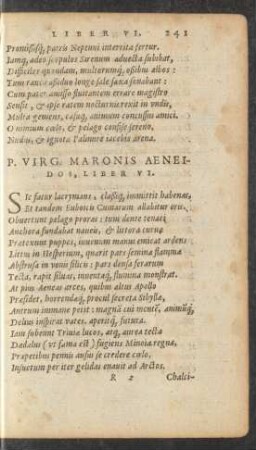 LIBER VI. 241
Promissisq́; patris Neptuni interrita fertur.
Iamq́; adeo scopulos Sirenum aduecta subibat,
Difficiles quondam, multorumq́; ossibus albos:
Tum rauca assiduo longè sale saxa sonabant:
Cum pater amisso fluitantem errare magistro
Sensit, & ipse ratem nocturnis rexit in vndis,
Multa gemens, casuq́; animum concussus amici.
O nimium cœlo, & pelago confise sereno,
Nudus, & ignota Palinure iacebis arena.
P. VIRG. MARONIS AENEI-
DOS, LIBER VI.
SIc fatur lacrymans, classiq́; immittit habenas,
Et tandem Euboicis Cumarum allabitur oris.
Obuertunt pelago proras: tum dente tenaci
Anchora fundabat naueis, & littora curuæ
Prætexunt puppes, iuuenum manus emicat ardens
Littus in Hesperium, quærit pars semina flammæ
Abstrusa in venis silicis: pars densa ferarum
Tecta, rapit siluas, inuentaq́; flumina monstrat.
At pius Aeneas arces, quibus altus Apollo
Præsidet, horrendæq́; procul secreta Sibyllæ,
Antrum immane petit: magnā cui mentē, animūq́;
Delius inspirat vates, aperitq́; futura.
Iam subeunt Triuiæ lucos, atq́; aurea tecta
Dædalus (vt fama est) fugiens Minoia regna,
Præpetibus pennis ausus se credere cœlo,
Insuetum per iter gelidas enauit ad Arctos,
R 2 Chalci-